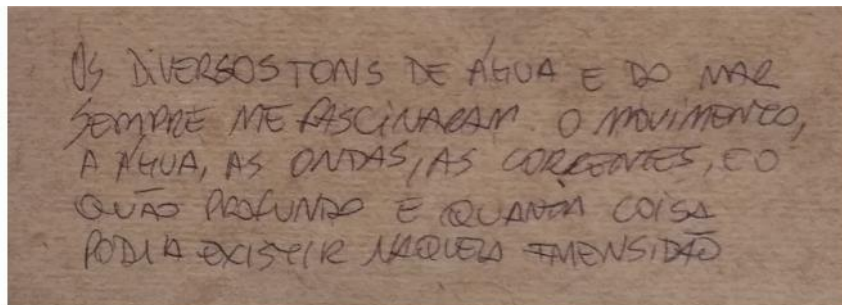 OS DIVERSOS TONS DE ÁGUA E DO MAR
SEMPRE ME FASCINARAM. O MOVIMENTO,
A ÁGUA, AS ONDAS, AS CORRENTES, E O
QUÃO PROFUNDO E QUANTA COISA
PODIA EXISTIR NAQUELA IMENSIDÃO